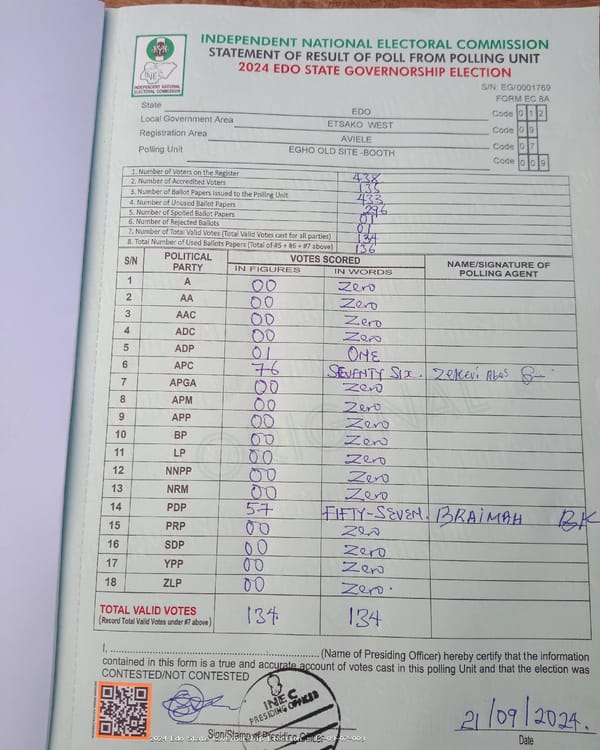 INDEPENDENT NATIONAL ELECTORAL COMMISSION
STATEMENT OF RESULT OF POLL FROM POLLING UNIT
2024 EDO STATE GOVERNORSHIP ELECTION
INEC
INDEPENDENT NATIONAL
ELECTORAL COMMISSION
S/N: EG/0001769
FORM EC 8A
State EDO Code 0 1 2
Local Government Area ETSAKO WEST Code 0 9
Registration Area AVIELE Code 0 7
Polling Unit EGHO OLD SITE -BOOTH Code 0 0 9
1. Number of Voters on the Register 438
2. Number of Accredited Voters 135
3. Number of Ballot Papers Issued to the Polling Unit 433
4. Number of Unused Ballot Papers 296
5. Number of Spoiled Ballot Papers 01
6. Number of Rejected Ballots 01
7. Number of Total Valid Votes (Total Valid Votes cast for all parties) 134
8. Total Number of Used Ballots Papers (Total of #5 + #6 + #7 above) 136
S/N POLITICAL PARTY VOTES SCORED NAME/SIGNATURE OF POLLING AGENT
IN FIGURES IN WORDS
1 A 00 Zero
2 AA 00 Zero
3 AAC 00 Zero
4 ADC 00 Zero
5 ADP 01 ONE
6 APC 76 SEVENTY SIX.
7 APGA 00 Zero
8 APM 00 Zero
9 APP 00 Zero
10 BP 00 Zero
11 LP 00 Zero
12 NNPP 00 Zero
13 NRM 00 Zero
14 PDP 57 FIFTY-SEVEN. BRAIMAH BK
15 PRP 00 Zero
16 SDP 00 Zero
17 YPP 00 Zero
18 ZLP 00 Zero.
TOTAL VALID VOTES 134 134
(Record Total Valid Votes under #7 above)
ORIGINAL
I, ............................................................ (Name of Presiding Officer) hereby certify that the information
contained in this form is a true and accurate account of votes cast in this polling Unit and that the election was
CONTESTED/NOT CONTESTED
INEC
PRESIDING OFFICER
21/09/2024.
Sign/Stamp of Presiding Officer Date